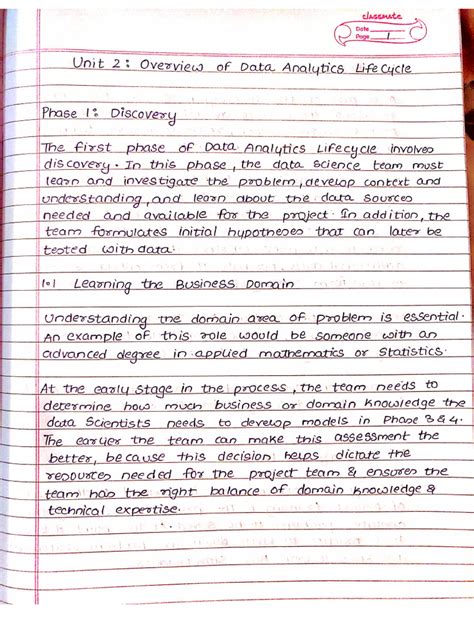 classmate
Date
Page 1
Unit 2: Overview of Data Analytics Life Cycle
Phase 1: Discovery
The first phase of Data Analytics Lifecycle involves
discovery. In this phase, the data science team must
learn and investigate the problem, develop context and
understanding, and learn about the data sources
needed and available for the project. In addition, the
team formulates initial hypotheses that can later be
tested with data.
1.1 Learning the Business Domain
Understanding the domain area of problem is essential.
An example of this role would be someone with an
advanced degree in applied mathematics or statistics.
At the early stage in the process, the team needs to
determine how much business or domain knowledge the
data Scientists needs to develop models in Phase 3 & 4.
The earlyer the team can make this assessment the
better, because this decision helps dictate the
resources needed for the project team & ensures the
team has the right balance of domain knowledge &
technical expertise.